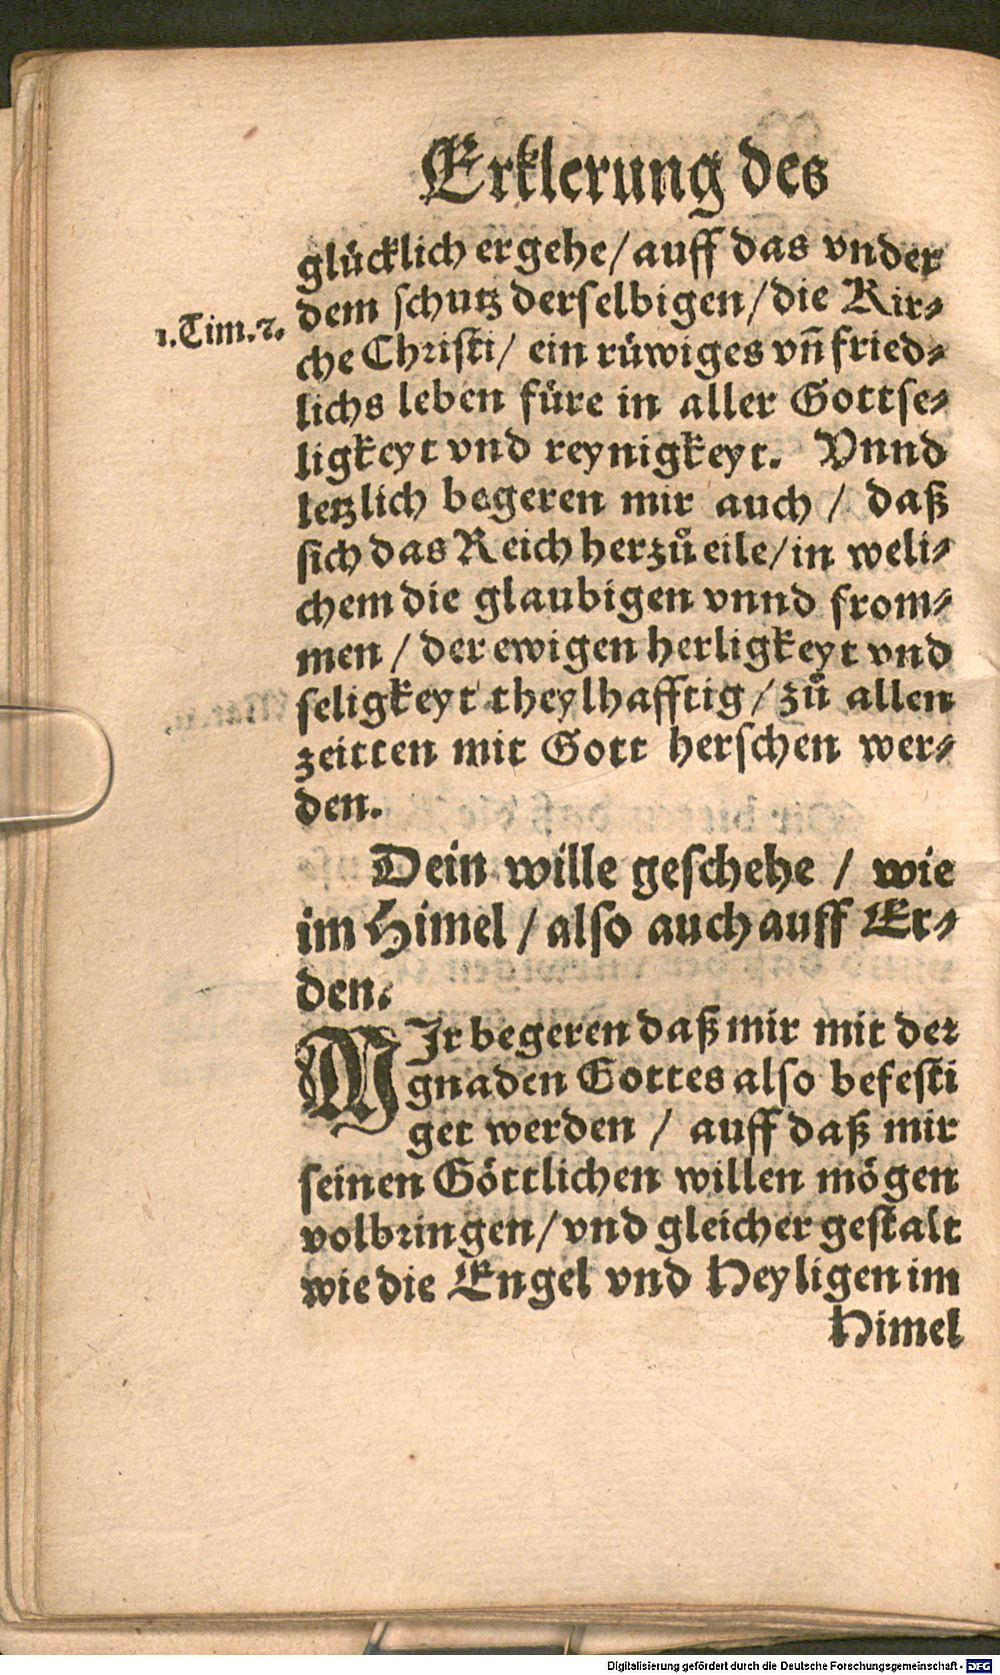 Erklerung des
glücklich ergehe/ auff das vnder
dem schutz derselbigen/ die Kir⸗
1. Tim. 2.
che Christi/ ein rüwiges vñ fried⸗
lichs leben füre in aller Gottse⸗
ligkeyt vnd reynigkeyt. Vnnd
letzlich begeren mir auch / daß
sich das Reich herzů eile/ in weli⸗
chem die glaubigen vnnd from⸗
men / der ewigen herligkeyt vnd
seligkeyt theylhafftig/ zů allen
zeitten mit Gott herschen wer⸗
den.
Dein wille geschehe / wie
im Himel / also auch auff Er⸗
den.
WJr begeren daß mir mit der
gnaden Gottes also befesti
get werden / auff daß mir
seinen Göttlichen willen mögen
volbringen/ vnd gleicher gestalt
wie die Engel vnd Heyligen im
Himel
Digitalisierung gefördert durch die Deutsche Forschungsgemeinschaft - DFG